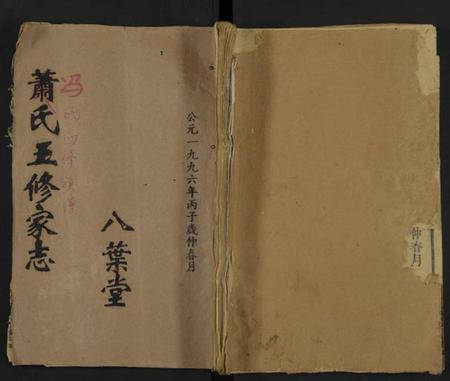 公元一九九六年丙子歲仲春月
八葉堂
冯氏四修族谱
蕭氏五修家志
仲春月